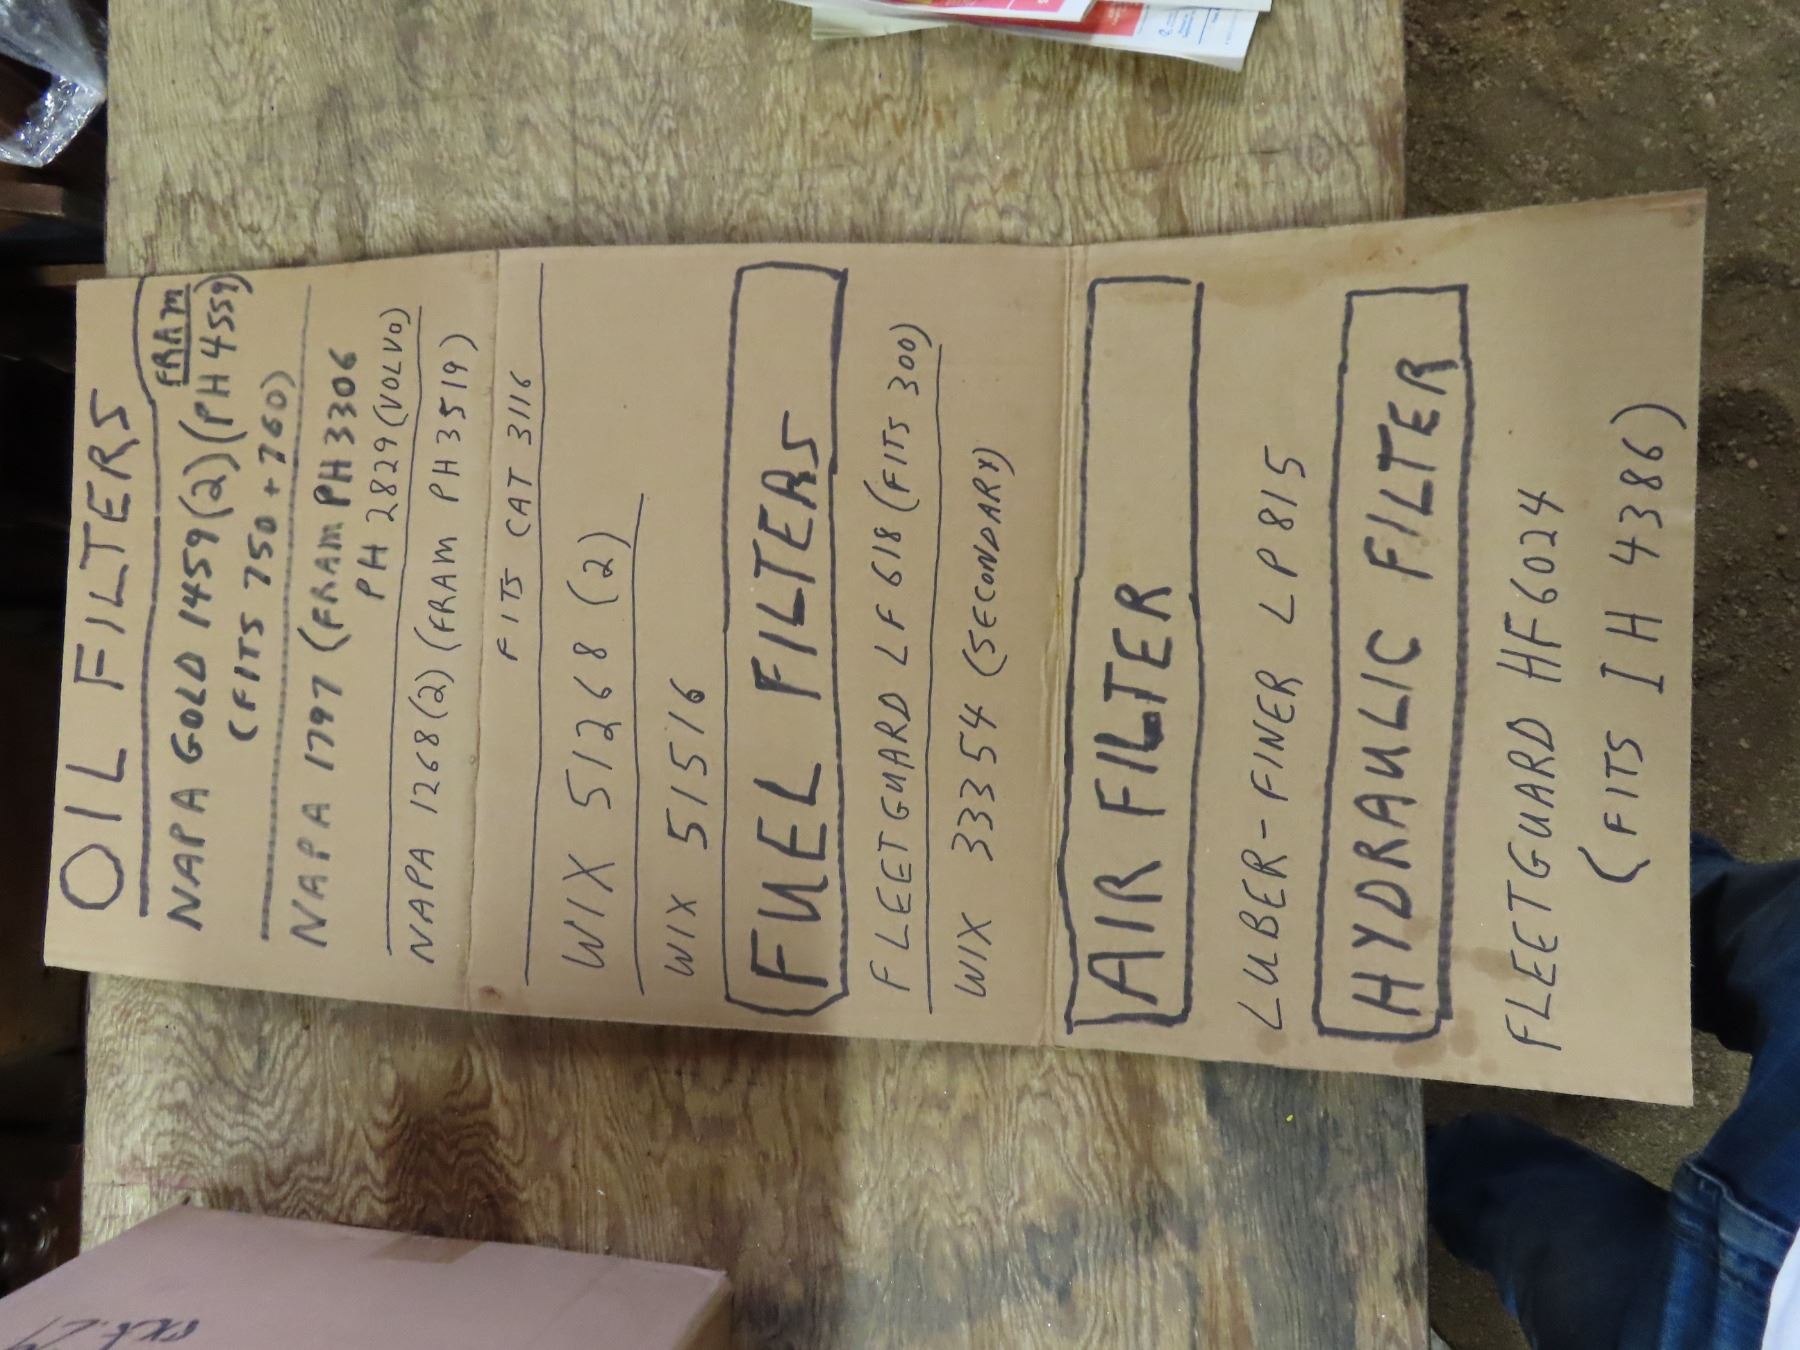 OIL FILTERS
FRAM
NAPA GOLD 1459(2)(PH4559)
(FITS 750 + 760)
NAPA 1797 (FRAM PH3306
PH 2829(VOLVO)
NAPA 1268(2)(FRAM PH3519)
FITS CAT 3116
WIX 51268(2)
WIX 51516
FUEL FILTERS
FLEETGUARD LF618(FITS 300)
WIX 33354 (SECONDARY)
AIR FILTER
LUBER-FINER LP815
HYDRAULIC FILTER
FLEETGUARD HF6024
(FITS IH 4386)